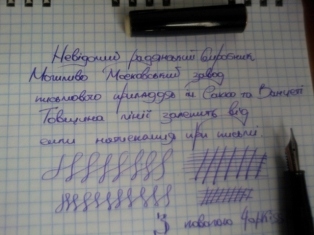 Невідомий радянський виробник
Можливо Московський завод
письмового приладдя ім Сакко та Ванцеті
Товщина лінії залежить від
сили натискання при письмі
З повагою